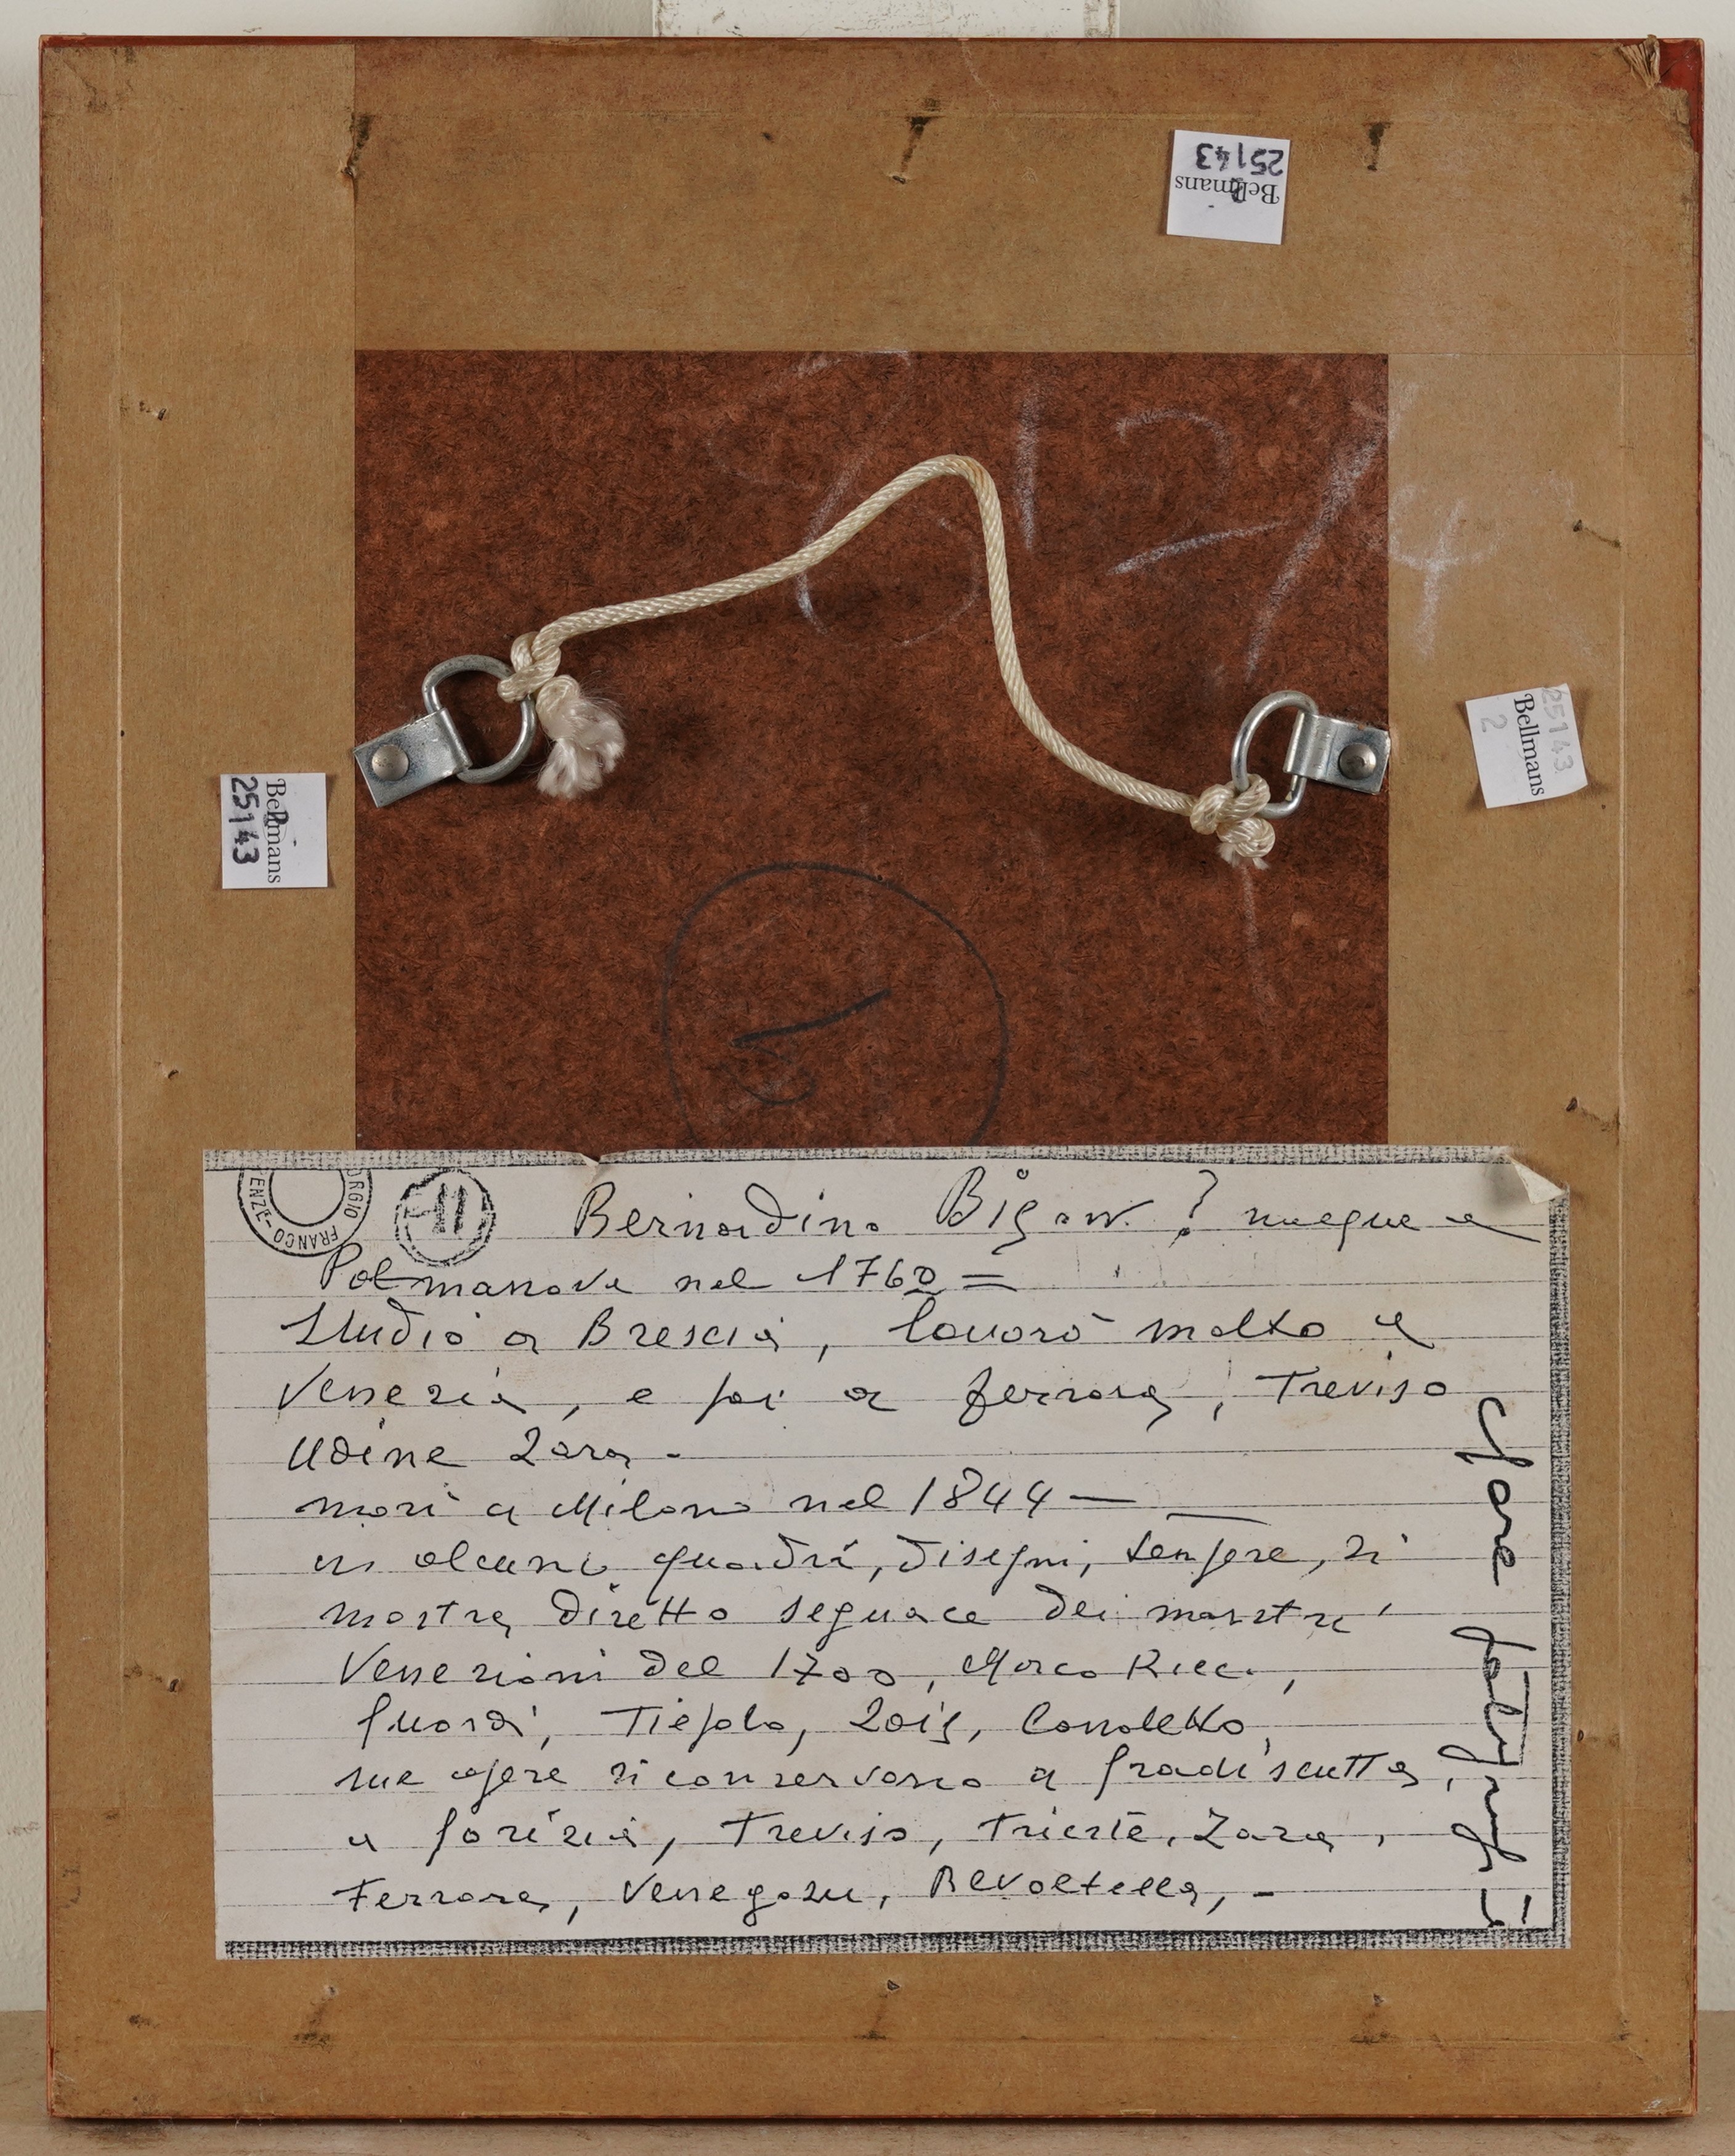 Bellmans
25143
Bellmans
25143
25143
Bellmans
2
FRANCO
11
Bernardino Bison ? nacque a
Palmanova nel 1762 =
Studiò a Brescia, lavorò molto a
Venezia, e poi a Ferrara, Treviso
Udine Zara -
morì a Milano nel 1844 —
in alcuni quadri, disegni, tempere, si
mostra diretto seguace dei maestri
Veneziani del 1700, Marco Ricci,
Guardi, Tiepolo, Zais, Canaletto,
sue opere si conservano a Gradiscutta,
a Gorizia, Treviso, Trieste, Zara,
Ferrara, Venegazu, Revoltella, -